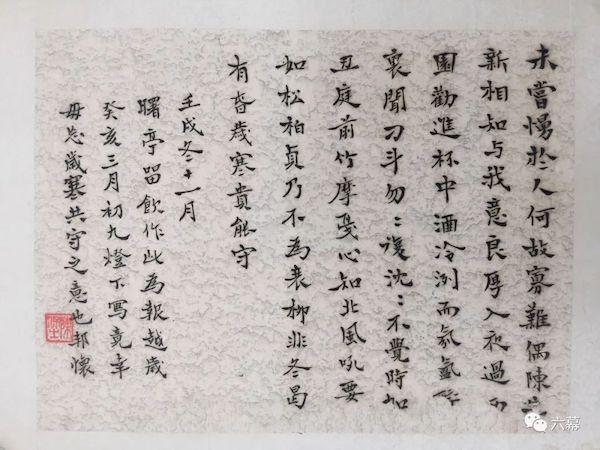 未嘗慢於人何故寡難偶陳
新相知与我意良厚入夜過
園勸進杯中酒冷冽而氛氳
裏聞刁斗勿〻復沈〻不覺時加
丑庭前竹摩戛心知北風吼要
如松柏貞乃不為衰柳非冬曷
有春歲寒貴能守
壬戌冬十一月
曙亭留飲作此為報越歲
癸亥三月初九燈下寫竟幸
毋忘歲寒共守之意也邦懷
六幕